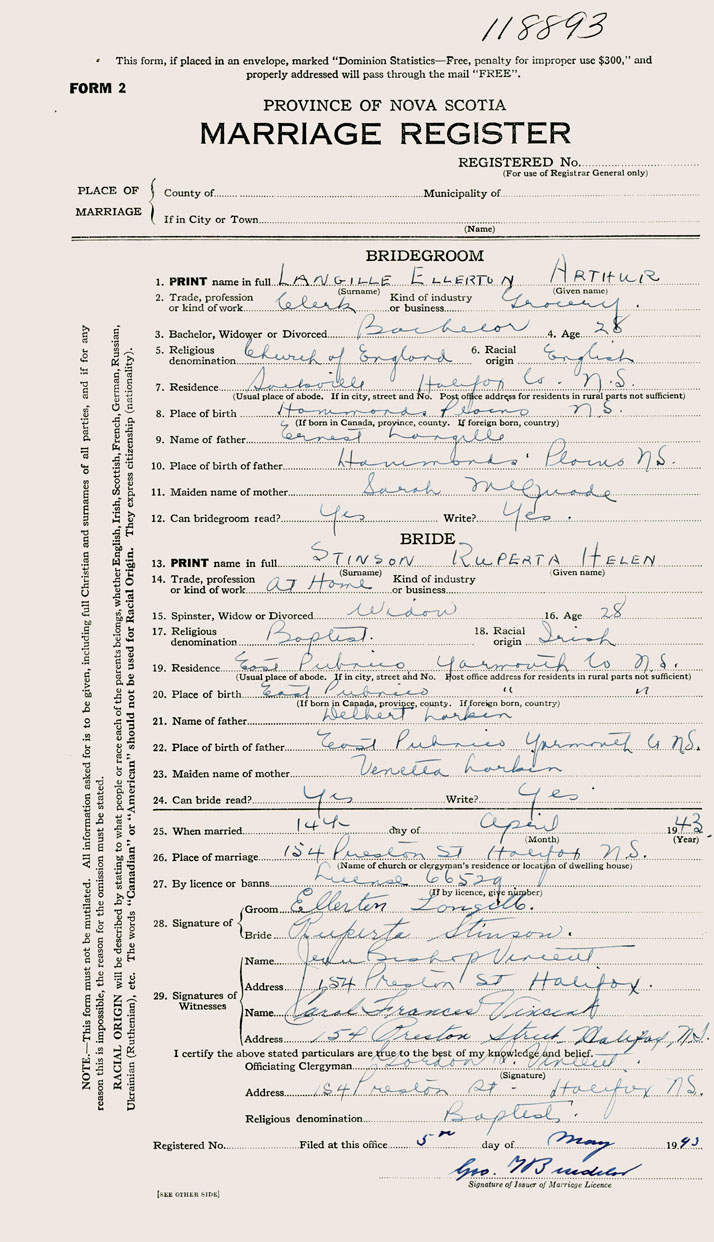 118893
This form, if placed in an envelope, marked “Dominion Statistics—Free, penalty for improper use $300,” and
properly addressed will pass through the mail “FREE”.
FORM 2
PROVINCE OF NOVA SCOTIA
MARRIAGE REGISTER
REGISTERED No.
(For use of Registrar General only)
PLACE OF MARRIAGE
County of Municipality of
If in City or Town
(Name)
BRIDEGROOM
1. PRINT name in full LANGILLE ELLERTON ARTHUR
(Surname) (Given name)
2. Trade, profession or kind of work Clerk Kind of industry or business Grocery.
3. Bachelor, Widower or Divorced Bachelor 4. Age 28
5. Religious denomination Church of England 6. Racial origin English
7. Residence Sackville Halifax Co. N.S.
(Usual place of abode. If in city, street and No. Post office address for residents in rural parts not sufficient)
8. Place of birth Hammonds Plains N.S.
(If born in Canada, province, county. If foreign born, country)
9. Name of father Ernest Langille
10. Place of birth of father Hammonds' Plains N.S.
11. Maiden name of mother Sarah McQuade
12. Can bridegroom read? Yes Write? Yes.
BRIDE
13. PRINT name in full STINSON RUPERTA HELEN
(Surname) (Given name)
14. Trade, profession or kind of work at Home Kind of industry or business
15. Spinster, Widow or Divorced Widow 16. Age 28
17. Religious denomination Baptist. 18. Racial origin Irish
19. Residence East Pubnico Yarmouth Co N.S.
(Usual place of abode. If in city, street and No. Post office address for residents in rural parts not sufficient)
20. Place of birth East Pubnico " "
(If born in Canada, province, county. If foreign born, country)
21. Name of father Delbert Larkin
22. Place of birth of father East Pubnico Yarmouth Co N.S.
23. Maiden name of mother Venetta Larkin
24. Can bride read? Yes Write? Yes.
25. When married 14th day of April 1943.
(Month) (Year)
26. Place of marriage 154 Preston St Halifax N.S.
(Name of church or clergyman's residence or location of dwelling house)
27. By licence or banns License 66529
(If by licence, give number)
28. Signature of Groom Ellerton Langille.
Bride Ruperta Stinson.
29. Signatures of Witnesses Name Jean Bishop Vincent
Address 154 Preston St Halifax.
Name Carol Frances Vincent
Address 154 Preston Street Halifax, N.S.
I certify the above stated particulars are true to the best of my knowledge and belief.
Officiating Clergyman Gordon Vincent
(Signature)
Address 154 Preston St - Halifax N.S.
Religious denomination Baptist.
Registered No. Filed at this office 5th day of May 1943
Geo.
Signature of Issuer of Marriage Licence
[SEE OTHER SIDE]
NOTE.—This form must not be mutilated. All information asked for is to be given, including full Christian and surnames of all parties, and if for any
reason this is impossible, the reason for the omission must be stated.
RACIAL ORIGIN will be described by stating to what people or race each of the parents belongs, whether English, Irish, Scottish, French, German, Russian,
Ukrainian (Ruthenian), etc. The words “Canadian” or “American” should not be used for Racial Origin. They express citizenship (nationality).